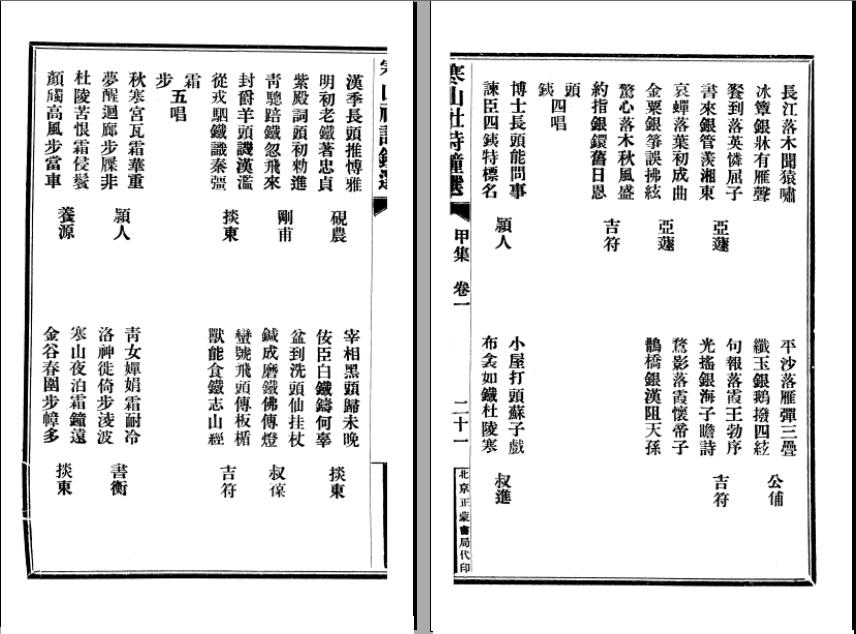 長江落木聞猿嘯
冰簟銀牀有雁聲
平沙落雁彈三疊
纖玉銀鵝撥四絃
公俌
餐到落英憐屈子
書來銀管羨湘東
亞蘧
句報落霞王勃序
光搖銀海子瞻詩
吉符
哀蟬落葉初成曲
金粟銀箏誤拂絃
亞蘧
鶩影落霞懷帝子
鵲橋銀漢阻天孫
驚心落木秋風盛
約指銀鐶舊日恩
吉符
頭
鐵 四唱
博士長頭能問事
諫臣四鐵特標名
潁人
小屋打頭蘇子戲
布衾如鐵杜陵寒
叔進
寒山社詩鐘選 甲集 卷一 二十一
北京正蒙書局代印
寒山社詩鐘選
漢季長頭推博雅
明初老鐵著忠貞
硯農
宰相黑頭歸未晚
佞臣白鐵鑄何辜
掞東
紫殿詞頭初勑進
青驄踣鐵忽飛來
剛甫
盆到洗頭仙挂杖
鍼成磨鐵佛傳燈
叔葆
封爵羊頭譏漢濫
從戎駟鐵識秦彊
掞東
蠻號飛頭傳板楯
獸能食鐵志山經
吉符
霜
步 五唱
秋寒宮瓦霜華重
夢醒迴廊步屧非
潁人
青女嬋娟霜耐冷
洛神徙倚步淩波
書衡
杜陵苦恨霜侵鬢
顏斶高風步當車
養源
寒山夜泊霜鐘遠
金谷春圍步幛多
掞東